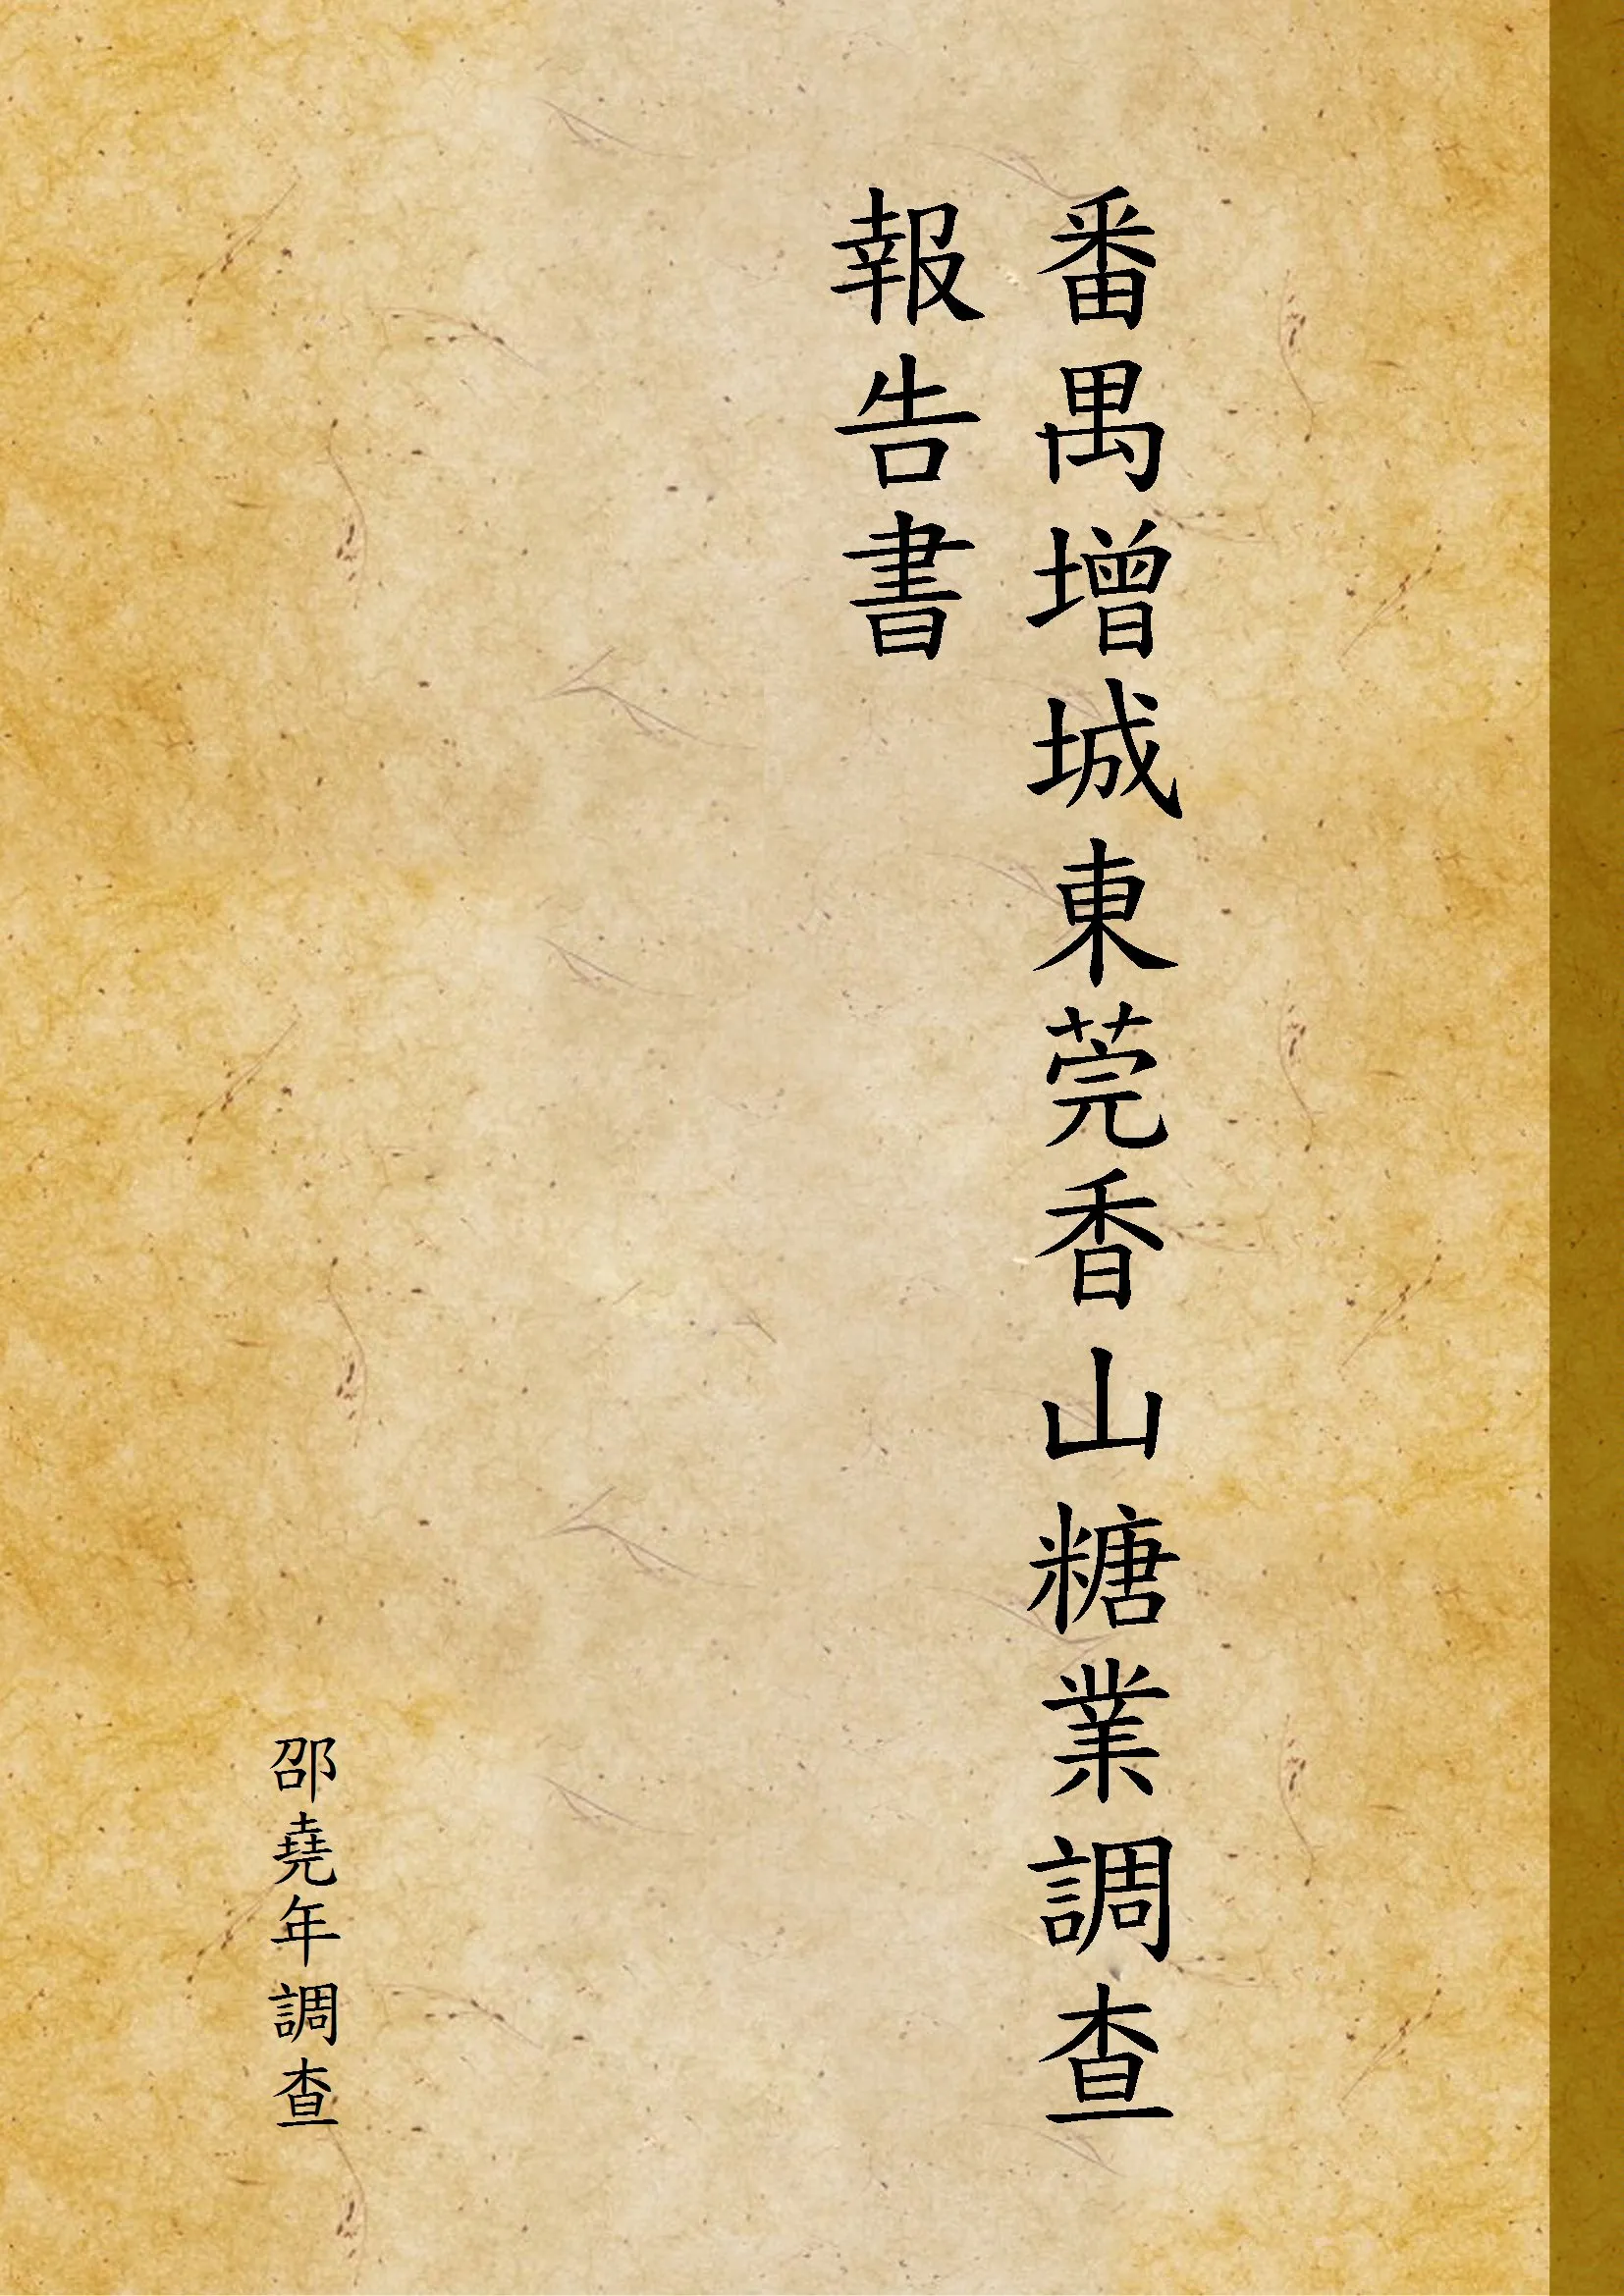 番禺增城東莞香山糖業調查
報告書
邵堯年調查